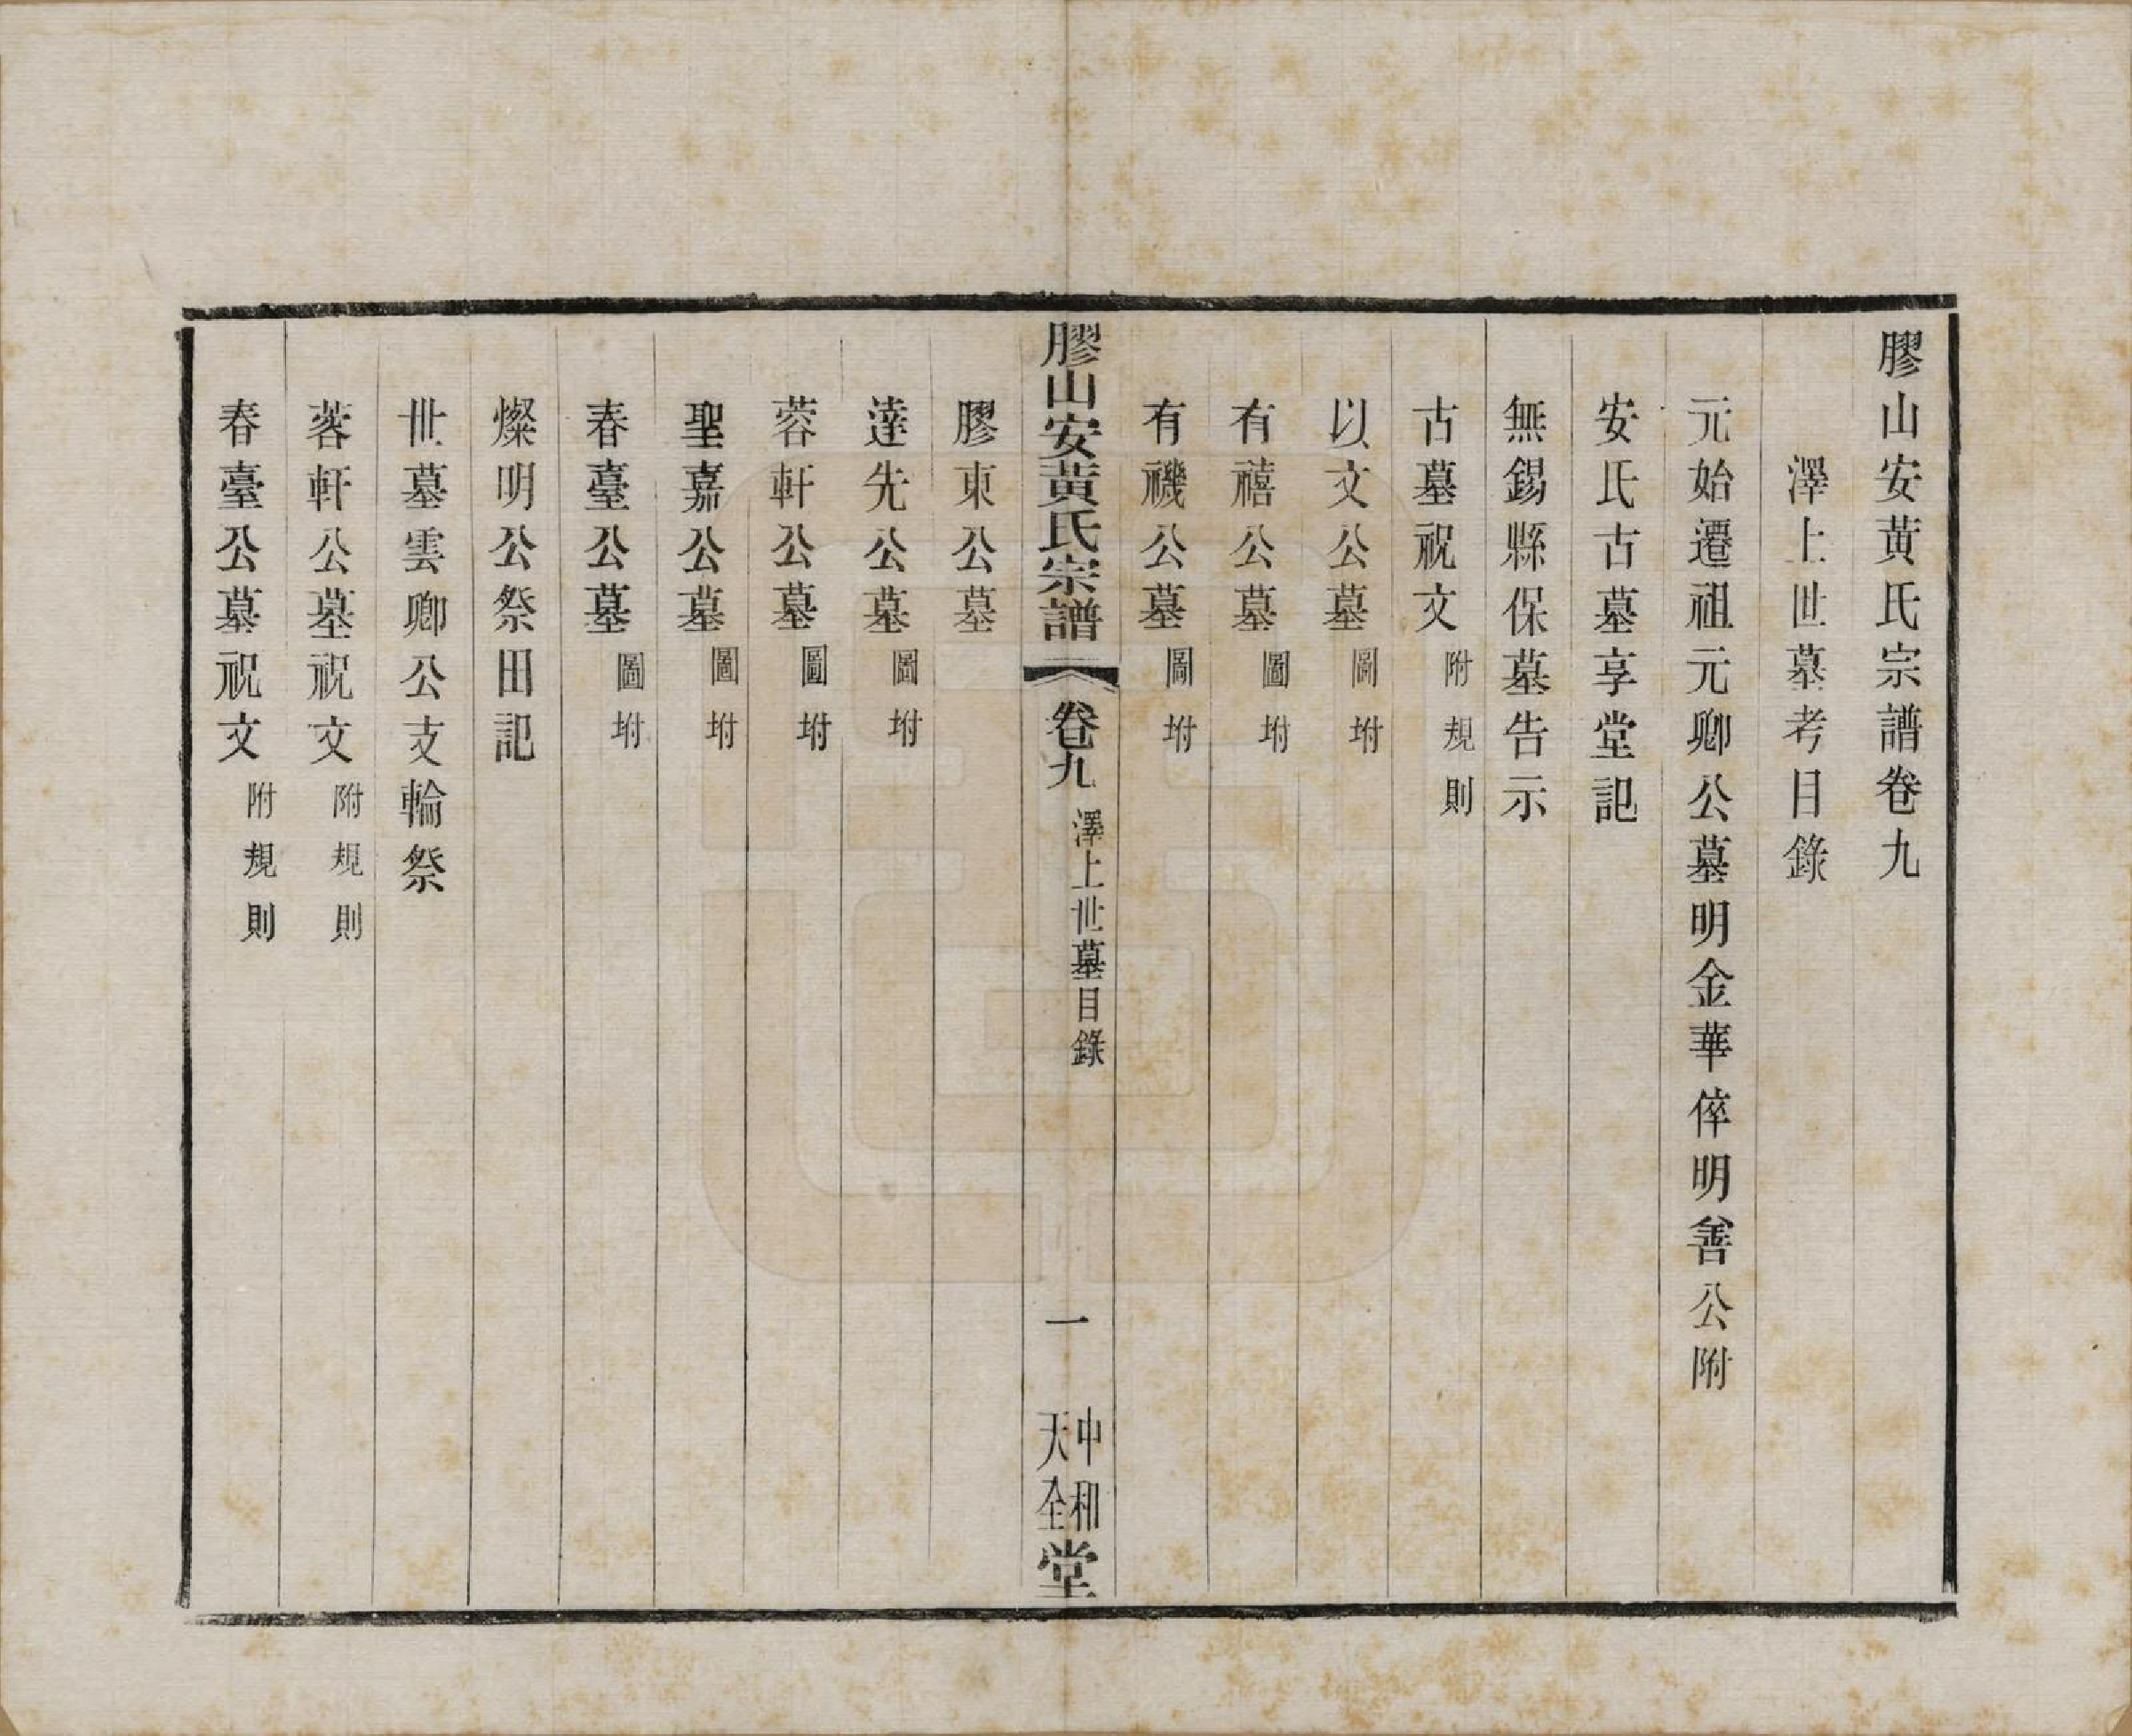 膠山安黃氏宗譜卷九
澤上世墓考目錄
元始遷祖元卿公墓明金華倅明善公附
安氏古墓享堂記
無錫縣保墓告示
古墓祝文附規則
以文公墓圖坿
有禧公墓圖坿
有禨公墓圖坿
膠山安黃氏宗譜 卷九 澤上世墓目錄 一 中和天全堂
膠東公墓
達先公墓圖坿
蓉軒公墓圖坿
聖嘉公墓圖坿
春臺公墓圖坿
燦明公祭田記
世墓雲卿公支輪祭
蓉軒公墓祝文附規則
春臺公墓祝文附規則